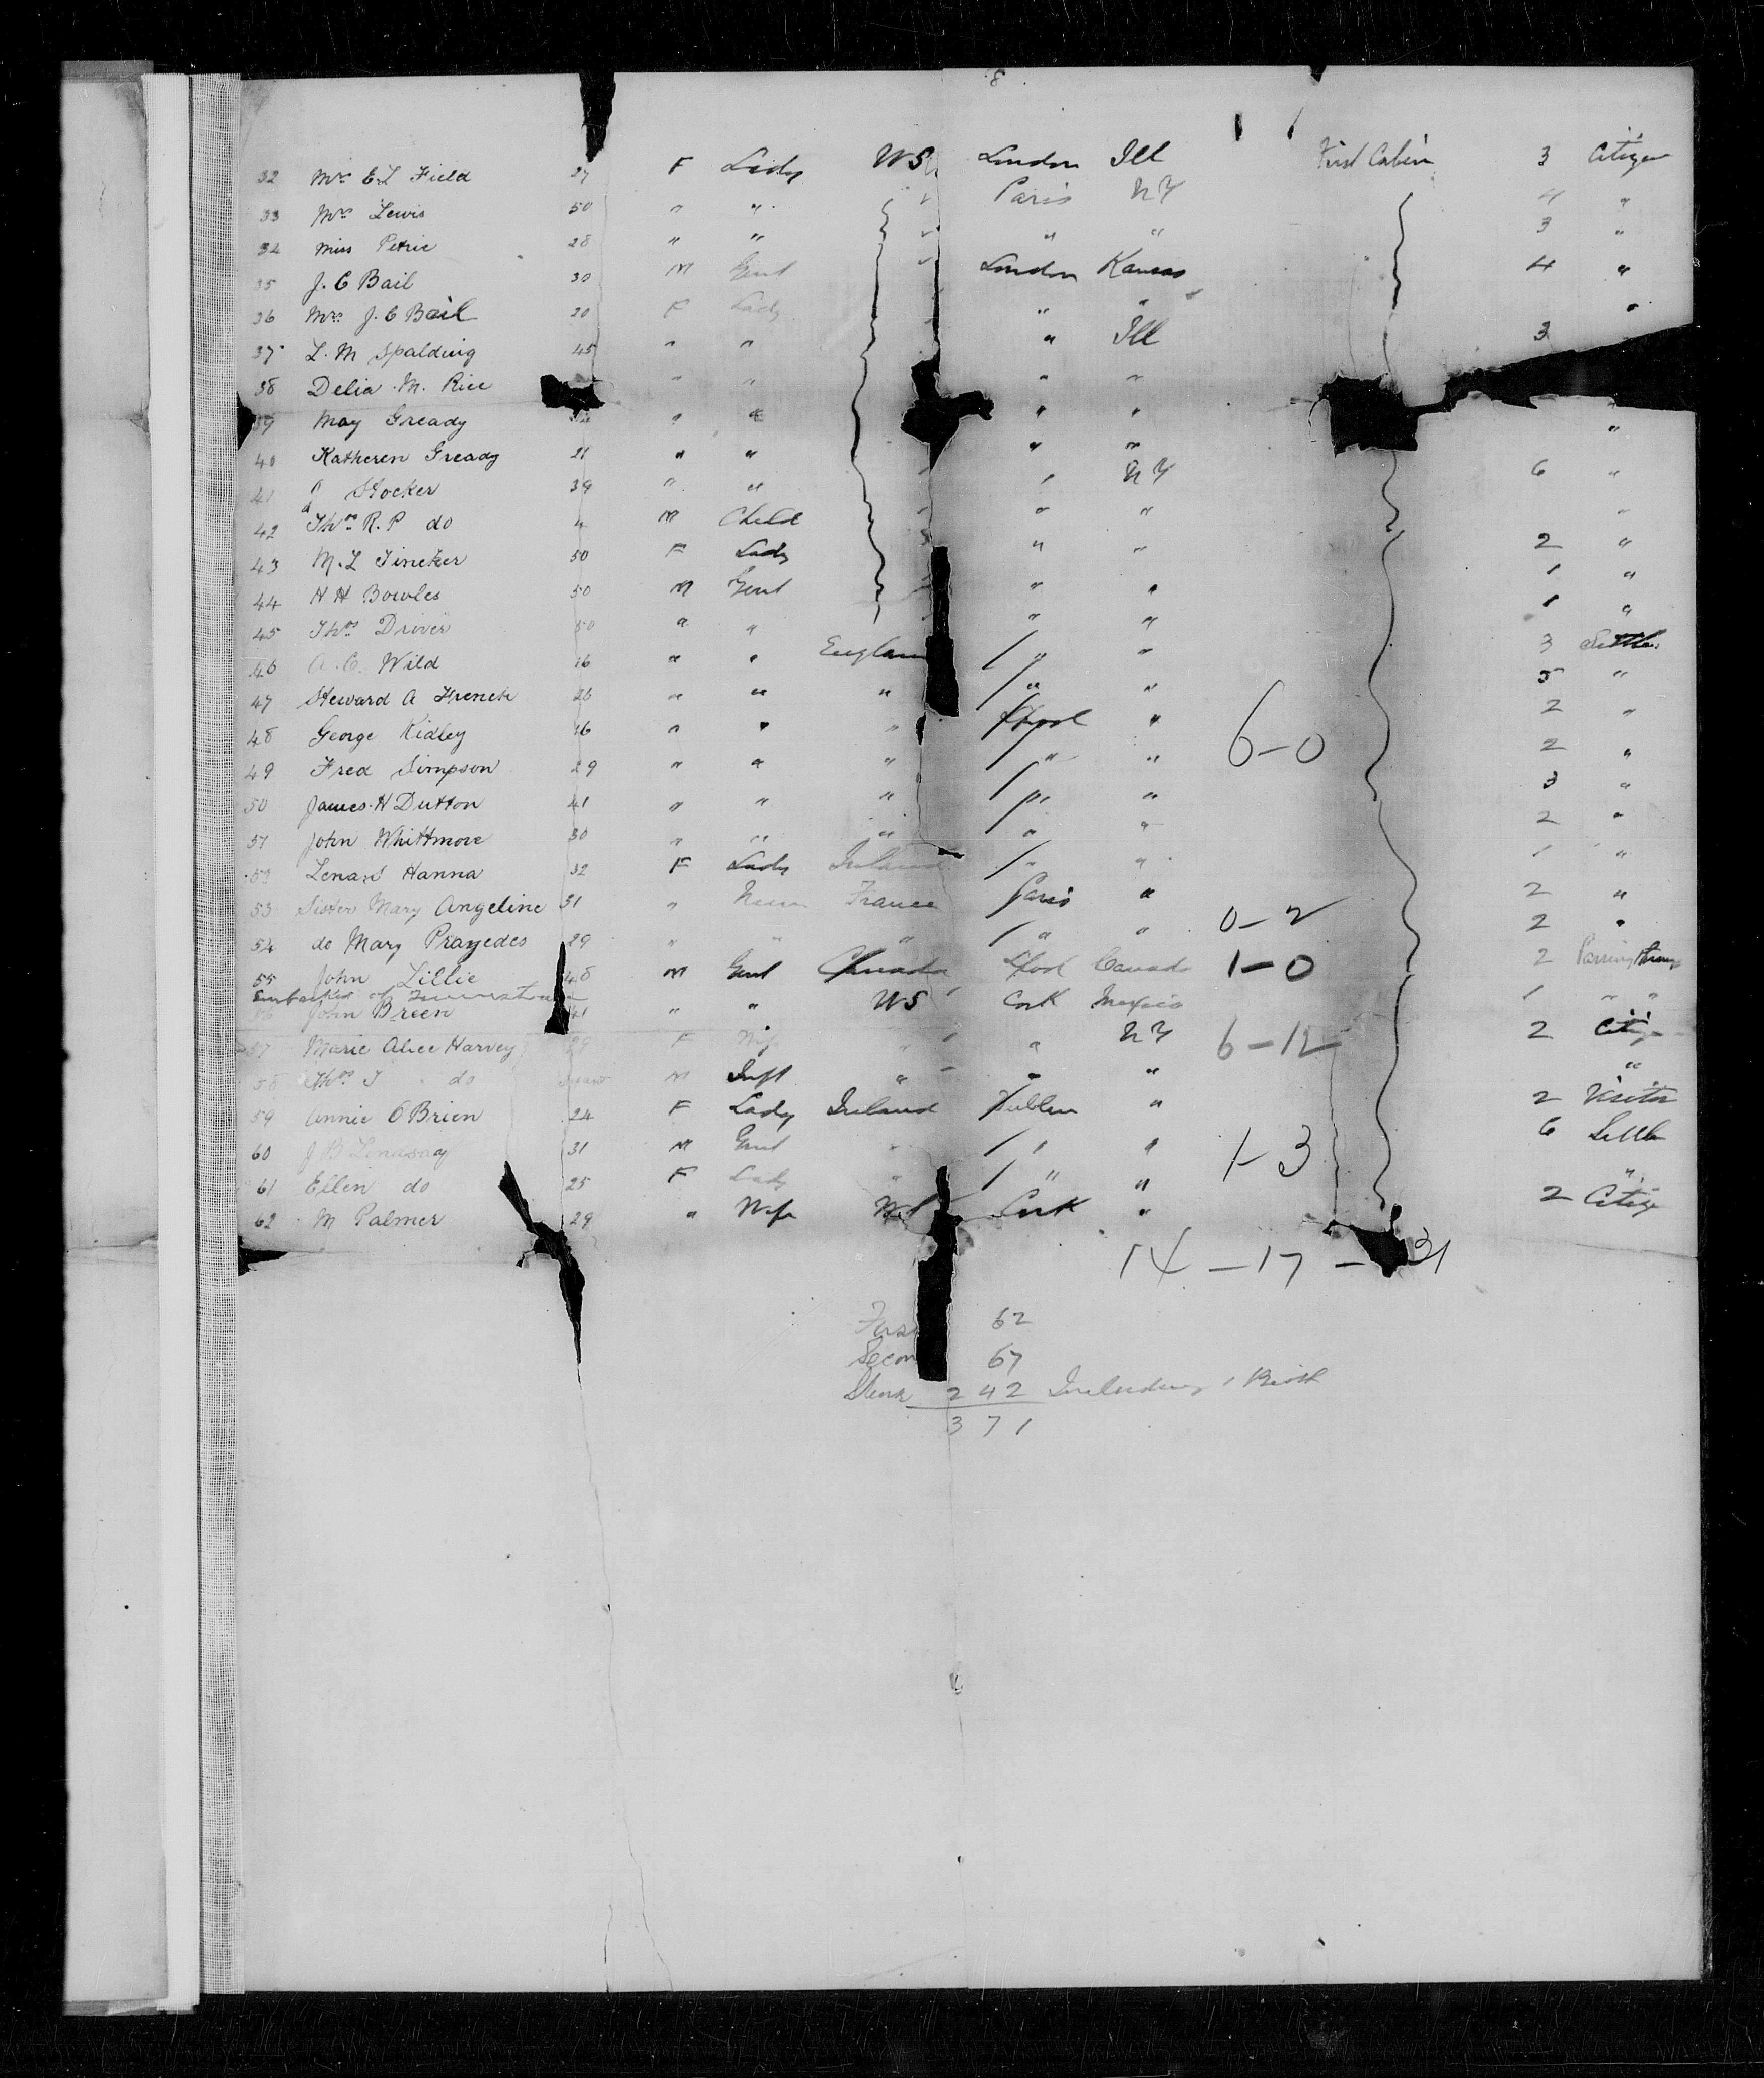 8
32 Mrs E L Field 27 F Lady US London Ill First Cabin 3 Citizen
33 Mrs Lewis 50 " " Paris NY 4 "
34 Miss Petrie 28 " " " " 3 "
35 J. C Bail 30 M Gent London Kansas 4 "
36 Mrs J. C Bail 20 F Lady " " "
37 L. M Spalding 45 " " " Ill 3
38 Delia M. Rice " " " "
39 May Gready " " " " "
40 Katheren Gready 21 " " " "
41 Stocker 39 " " " NY 6 "
42 Thos R. P do 4 M Child " " "
43 M. L Tincker 50 F Lady " " 2 "
44 H H Bowles 50 M Gent " " 1 "
45 Thos Driver 50 " " " " 1 "
46 A. C. Wild " " England " " 3 Settler
47 Steward A French 26 " " " " " 5 "
48 George Ridley " " " L'pool " 2 "
6-0
49 Fred Simpson 29 " " " " " 2 "
50 James H Dutton 41 " " " " " 3 "
51 John Whittmore 30 " " " " " 2 "
52 Hanna 32 F Lady Ireland " " 1 "
53 Sister Mary Angeline 31 " France Paris " 2 "
0-2
54 do Mary Praxedes 29 " " " " " 2 "
55 John Lillie 48 M Gent Canada L'pool Canada 1-0 2 Passing through
Embarked at Queenstown
56 John Breen 41 " " US Cork Mexico 1 " "
57 Marie Alice Harvey 29 F Wife " " NY 6-12 2 Citizen
58 Thos J do Infant M Inft " " " "
59 Annie O'Brien 24 F Lady Ireland Dublin " 2 Visitor
60 J B Lindsay 31 M Gent " " " 6 Settler
1-3
61 Ellen do 25 F Lady " " " "
62 M Palmer 29 " Wife Cork " 2 Citizen
14-17-31
First 62
Second 67
242 Including 1 Birth
371